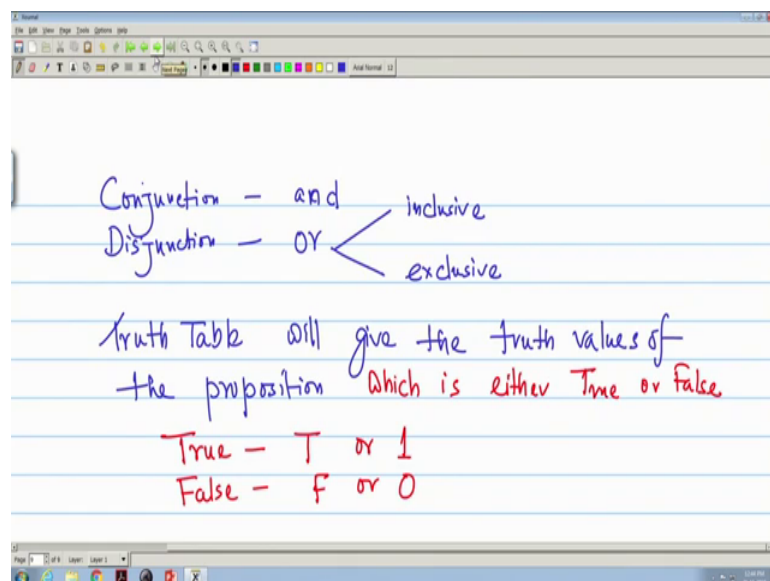 Journal
File Edit View Page Tools Options Help
Next Page
Arial Normal 12
Conjunction – and
inclusive
Disjunction – or
exclusive
Truth Table will give the truth values of
the proposition which is either True or False
True – T or 1
False – F or 0
Page 9 of 9 Layer: Layer 1